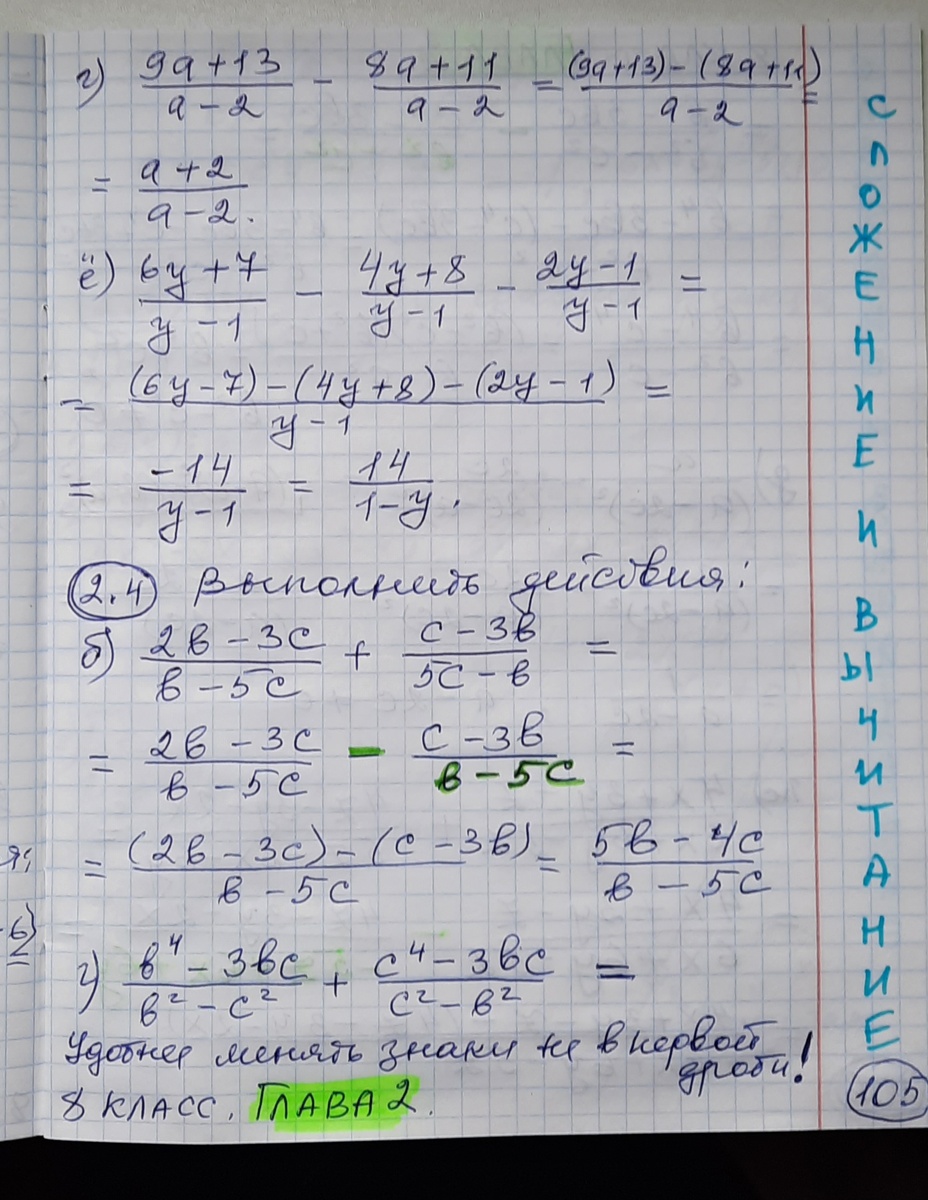 г) (9a+13)/(a-2) - (8a+11)/(a-2) = ((9a+13)-(8a+11))/(a-2) =
= (a+2)/(a-2).
ё) (6y+7)/(y-1) - (4y+8)/(y-1) - (2y-1)/(y-1) =
= ((6y-7)-(4y+8)-(2y-1))/(y-1) =
= (-14)/(y-1) = 14/(1-y).
2.4 Выполнить действия:
б) (2в-3с)/(в-5с) + (с-3в)/(5с-в) =
= (2в-3с)/(в-5с) - (с-3в)/(в-5с) =
= ((2в-3с)-(с-3в))/(в-5с) = (5в-4с)/(в-5с)
г) (в⁴-3вс)/(в²-с²) + (с⁴-3вс)/(с²-в²) =
Удобнее менять знаки не в первой
дроби!
8 КЛАСС. ГЛАВА 2.
СЛОЖЕНИЕ И ВЫЧИТАНИЕ
105